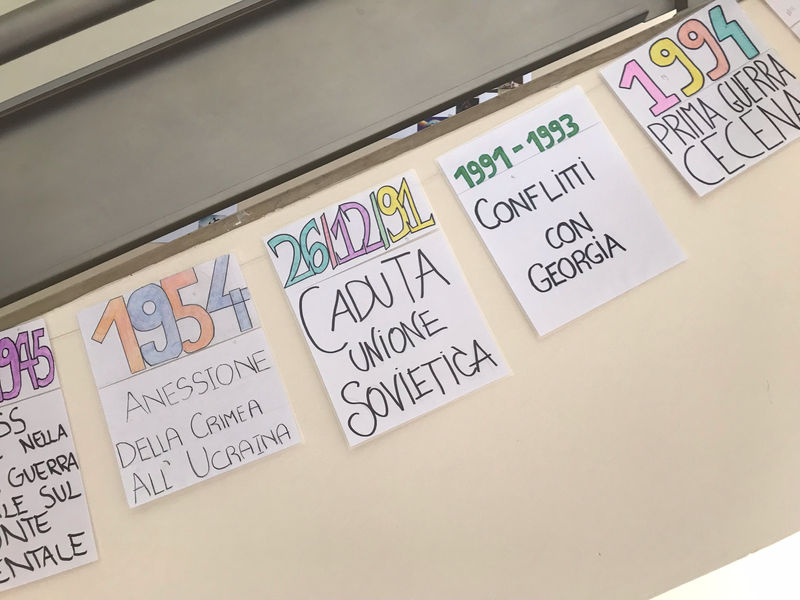 1945
SS
NELLA
GUERRA
LE SUL
NTE
ENTALE
1954
ANESSIONE
DELLA CRIMEA
ALL' UCRAINA
26/12/91
CADUTA
UNIONE
SOVIETICA
1991-1993
CONFLITTI
CON
GEORGIA
1994
PRIMA GUERRA
CECENA